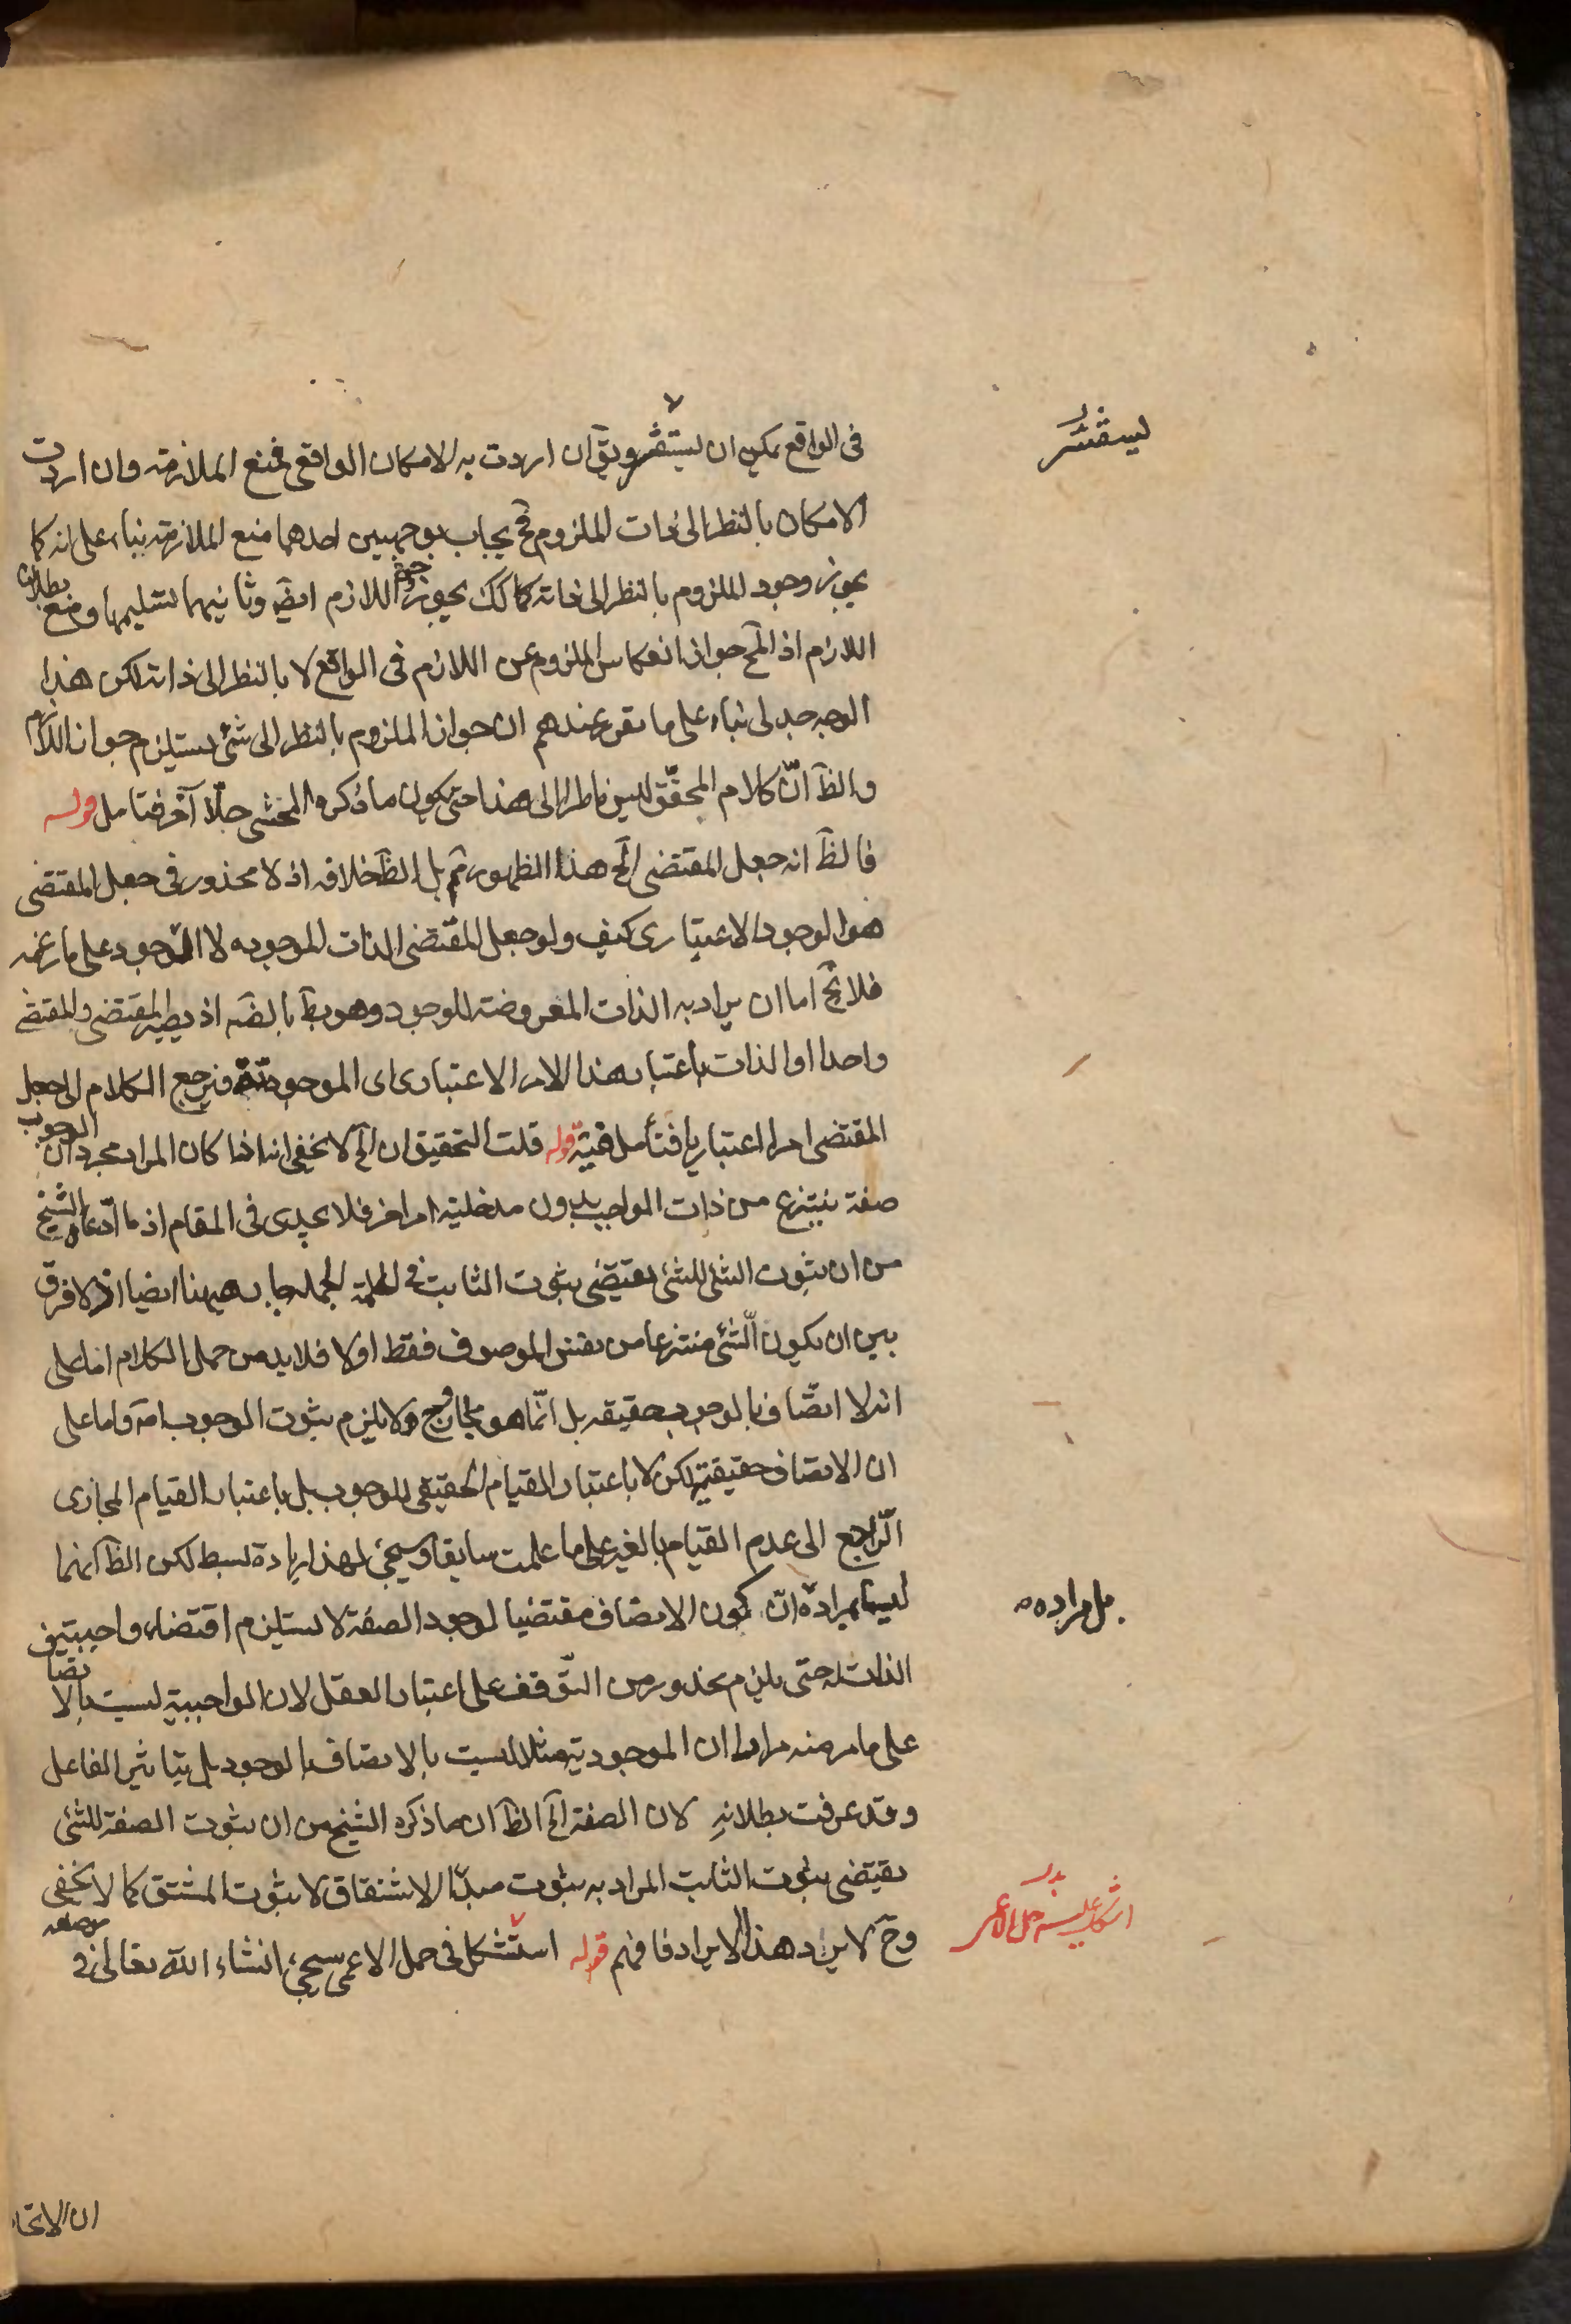 فى الواقع يمكن ان يستفسر ويق ان اردت به الامكان الواقعى فنمنع الملازمة وان اردت
الامكان بالنظر الى ذات الملزوم فح يجاب بوجهين احدهما منع الملازمة بناء على انه كما
يجوز وجود الملزوم بالنظر الى ذاته كذلك يجوز اللازم ايضا وثانيهما تسليمها ومنع بطلان
اللازم اذ المح جواز انفكاس الملزوم عن اللازم فى الواقع لا بالنظر الى ذاته لكن هذا
الوجه جدلى بناء على ما تقرر عندهم ان جواز الملزوم بالنظر الى شئ يستلزم جواز اللازم
والظ انّ كلام المحقّق ليس ناظرا الى هذا حتى يكون ما ذكره المحشى حلّا آخر فتامل قوله
فالظ انه جعل المقتضى الخ هذا الظهور مم بل الظ خلافه اذ لا محذور فى جعل المقتضى
هو الوجود الاعتبارى كيف ولو جعل المقتضى الذات الموجوده لا الوجود على ما زعمه
فلا يخ اما ان يراد به الذات المعروضة للوجود وهو بط بالضه اذ يصير المقتضى والمقتضى
واحدا او الذات باعتبار هذا الامر الاعتبارى اى الموجودية فيرجع الكلام الى جعل
المقتضى امرا اعتباريا فتأمل فيه قوله قلت التحقيق ان الخ لا يخفى انه اذا كان المراد مجرد ان الوجوب
صفة ينتزع من ذات الواجب بدون مدخلية امر اخر فلا يجدى فى المقام اذ ما ادّعاه الشيخ
من ان ثبوت الشئ للشئ يقتضى ثبوت الثابت فى الجملة جار هيهنا ايضا اذ لا فرق
بين ان يكون الشئ منتزعا من نفس الموصوف فقط او لا فلا بد من حمل الكلام اما على
انه لا اتصاف بالوجوب حقيقه بل انّما هو مجاز وح لا يلزم ثبوت الوجوب اصه واما على
ان الاتصاف حقيقة لكن لا باعتبار القيام الحقيقى للوجوب بل باعتبار القيام المجازى
الراجع الى عدم القيام بالغير على ما علمت سابقا وسيجئ لهذا زيادة بسط لكن الظ انهما
ليسا بمراده انّ كون الاتصاف مقتضيا لوجود الصفة لا يستلزم اقتضاء واجبية
الذات له حتى يلزم محذور من التوقف على اعتبار العقل لان الواجبية ليست بالاتصاف
على ما مر منه مرارا ان الموجودية مثلا ليست بالاتصاف بالوجود بل بتاثير الفاعل
وقد عرفت بطلانه لان الصفة الخ الظ ان ما ذكره الشيخ من ان ثبوت الصفة للشئ
يقتضى ثبوت الثابت المراد به ثبوت مبدأ الاشتقاق لا ثبوت المشتق كما لا يخفى
وح لا يرد هذا الايراد فافهم قوله استشكل فى حمل الاعمى سيجئ انشاء الله تعالى فى
يستفسر
بل مراده
اشكل عليه حمل الاعمى
ان الاتحا